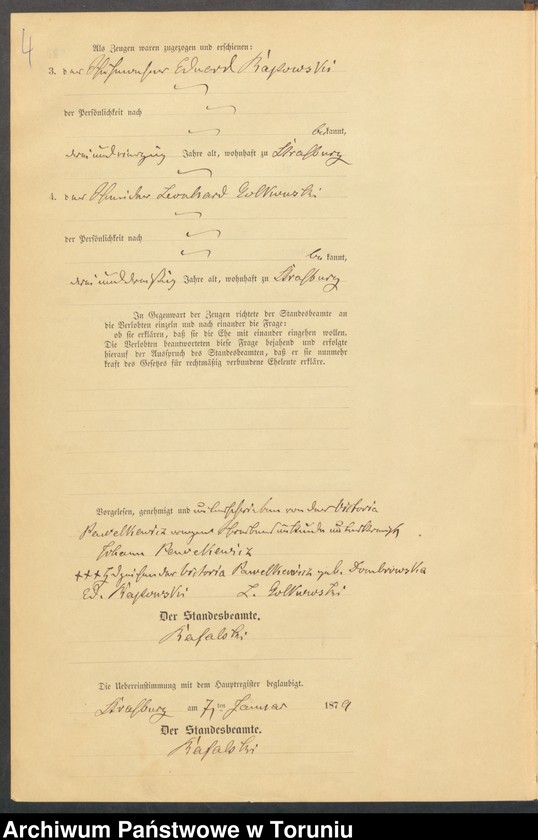 4
Als Zeugen waren zugezogen und erschienen:
3. der Eduard Rajkowski
der Persönlichkeit nach
bekannt,
dreiundvierzig Jahre alt, wohnhaft zu Straßburg
4. der Schneider Leonhard Golkowski
der Persönlichkeit nach
bekannt,
dreiunddreißig Jahre alt, wohnhaft zu Straßburg
In Gegenwart der Zeugen richtete der Standesbeamte an
die Verlobten einzeln und nach einander die Frage:
ob sie erklären, daß sie die Ehe mit einander eingehen wollen.
Die Verlobten beantworteten diese Frage bejahend und erfolgte
hierauf der Ausspruch des Standesbeamten, daß er sie nunmehr
kraft des Gesetzes für rechtmäßig verbundene Eheleute erkläre.
Vorgelesen, genehmigt und unterschrieben von der Victoria
Pawelkiewicz wegen Schreibensunkunde unterkreuzt
Johann Pawelkiewicz
+++ Hdzeichen der Victoria Pawelkiewicz geb. Dombrowska
Ed. Rajkowski L. Golkowski
Der Standesbeamte.
Kafalski
Die Uebereinstimmung mit dem Hauptregister beglaubigt.
Straßburg am 7ten Januar 1879
Der Standesbeamte.
Kafalski
Archiwum Państwowe w Toruniu